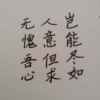 岂能尽如
人意但求
无愧吾心